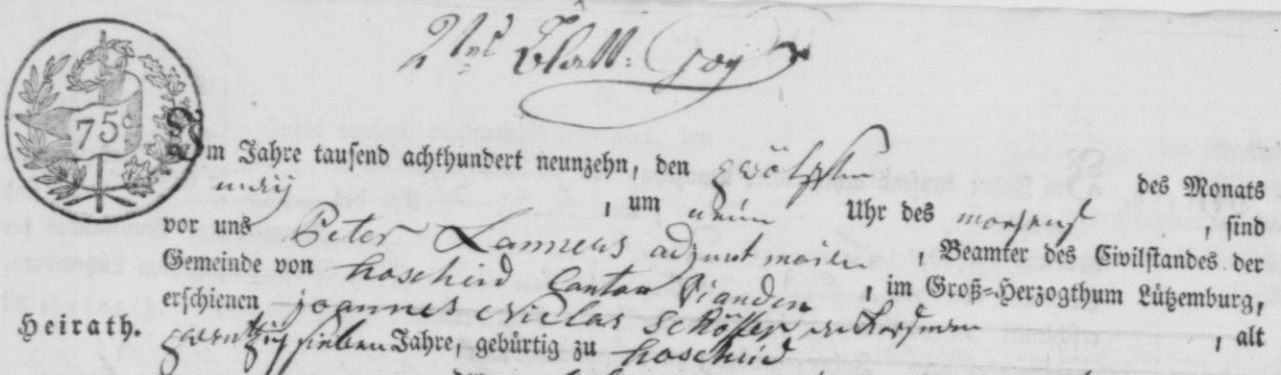 2tes Blatt.
75c
Im Jahre tausend achthundert neunzehn, den zwölften des Monats
may, um neün Uhr des morgens, sind
vor uns Peter Lanners adjunt maire, Beamter des Civilstandes der
Gemeinde von hoscheid Canton Vianden, im Groß-Herzogthum Lützemburg,
erschienen joannes Niclas Schösser, alt
Heirath.
zwantzig sieben Jahre, gebürtig zu hoscheid